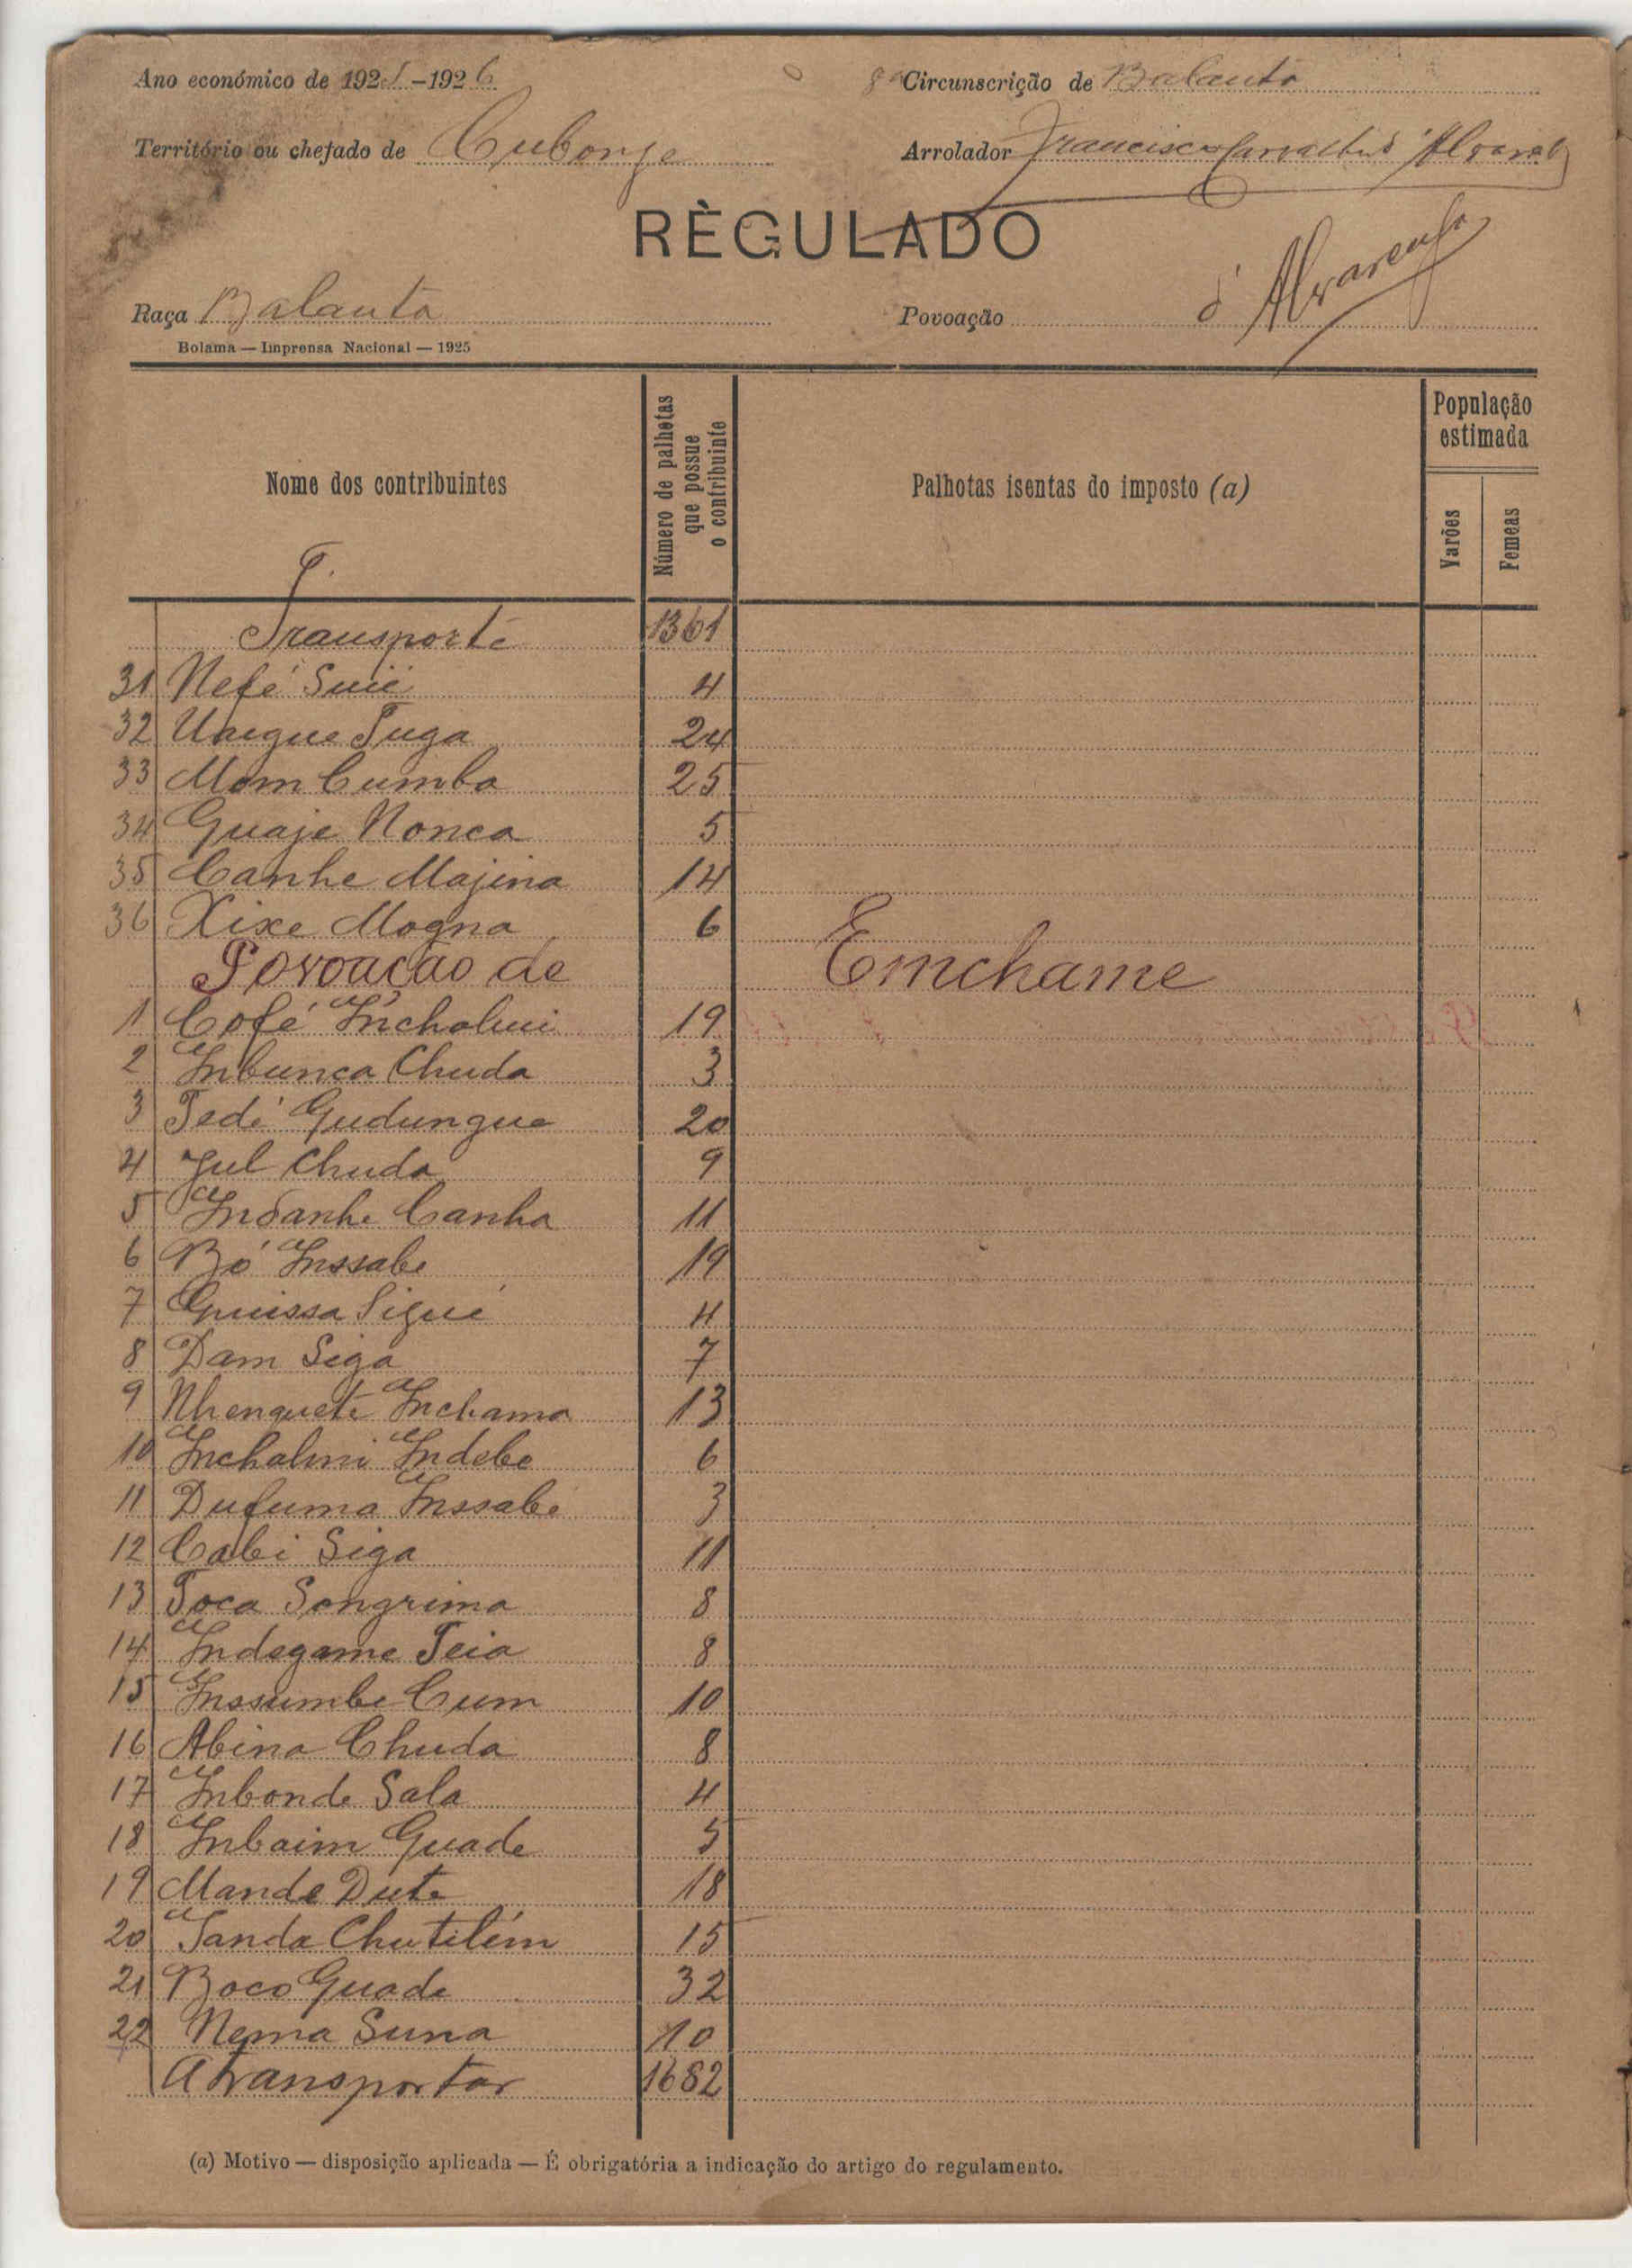 Ano económico de 1925-1926 8ª Circunscrição de Balanta
Território ou chefado de Cubonje Arrolador Francisco Carvalho d'Alvarenga
RÈGULADO
d'Alvarenga
Raça Balanta Povoação
Bolama — Imprensa Nacional — 1925
Nome dos contribuintes Número de palhotas que possue o contribuinte Palhotas isentas do imposto (a) População estimada
Varões Femeas
Transporte 1361
31 Nefé Suié 4
32 Unegue Tuga 24
33 Mom Cumba 25
34 Guaje Nonca 5
35 Canhe Majina 14
36 Xixe Mogna 6
Povoação de Emchame
1 Cofé Incholmi 19
2 Inbunca Chuda 3
3 Tedé Gudungue 20
4 Jul Chuda 9
5 Indanhe Canha 11
6 Bó Inssabe 19
7 Guissa Sigué 4
8 Dam Siga 7
9 Nhenquete Inchama 13
10 Inchalmi Indebe 6
11 Dufuma Inssabé 3
12 Cabi Siga 11
13 Toca Songrima 8
14 Indegame Teia 8
15 Inssumbe Cum 10
16 Abina Chuda 8
17 Inbonde Sala 4
18 Inbaim Guade 5
19 Mande Dute 18
20 Sanda Chutilém 15
21 Boco Guade 32
22 Nema Suna 10
A transportar 1682
(a) Motivo — disposição aplicada — É obrigatória a indicação do artigo do regulamento.